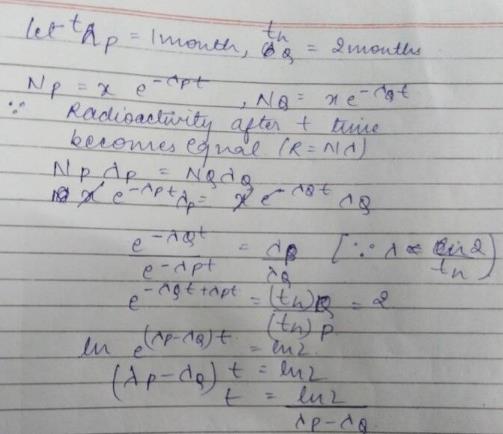 let t½P = 1 month, t½Q = 2 months
NP = x e^-λPt , NQ = x e^-λQt
∵ Radioactivity after t time
becomes equal (R = Nλ)
NP λP = NQ λQ
x e^-λPt λP = x e^-λQt λQ
e^-λQt / e^-λPt = λP / λQ [∵ λ = ln 2 / t½]
e^-λQt + λPt = (t½)Q / (t½)P = 2
ln e^(λP - λQ)t = ln 2
(λP - λQ) t = ln 2
t = ln 2 / λP - λQ